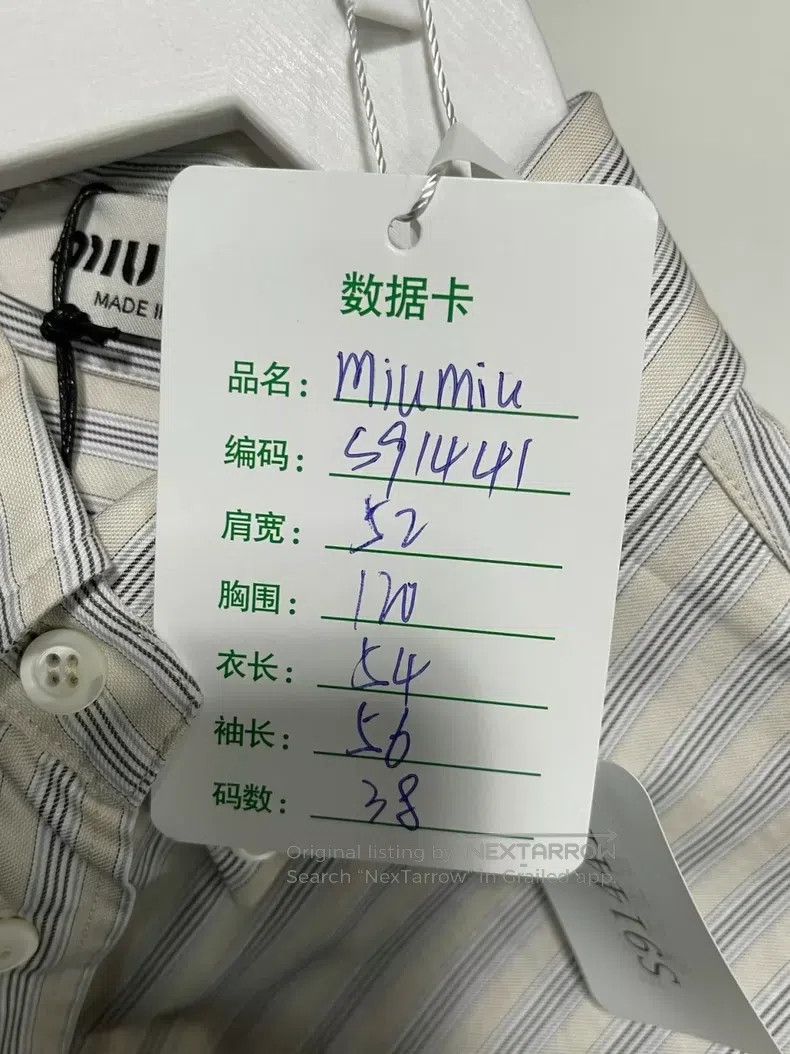 MIU
MADE I
数据卡
品名: miumiu
编码: 591441
肩宽: 52
胸围: 120
衣长: 54
袖长: 56
码数: 38
Original listing by NEXTARROW
Search "NexTarrow" in Grailed app